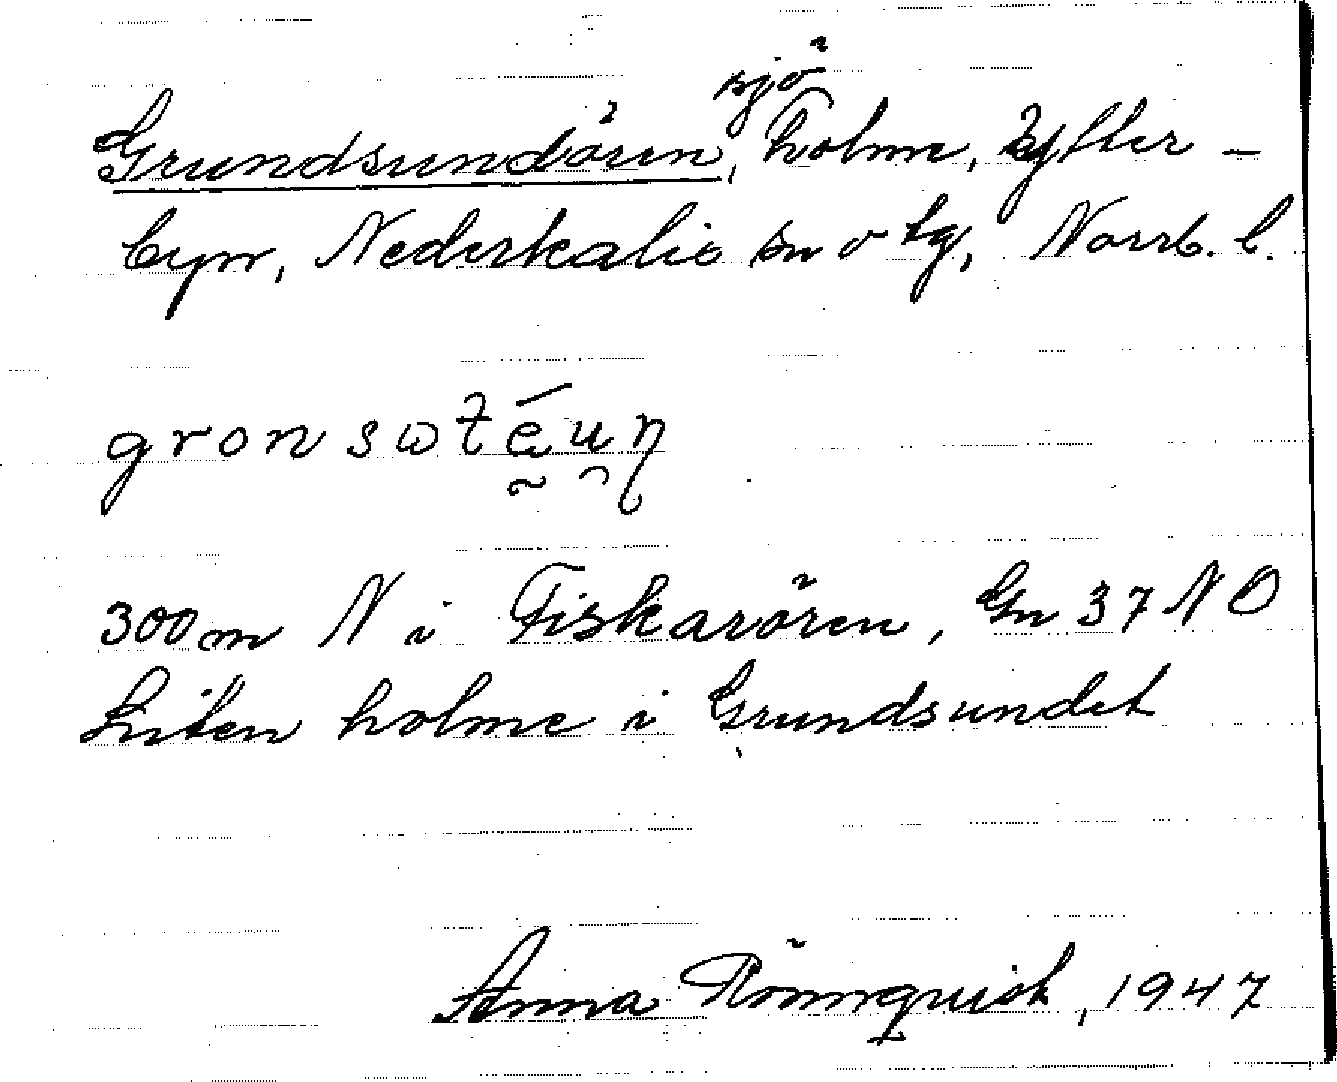 sjö
Grundsundören, holme, Ytter-
byn, Nederkalix sn o tg, Norrb. l.
gronsωtéun
300 m N i Fiskarören, Gn 37 NO
Liten holme i Grundsundet
Anna Rönnquist, 1947